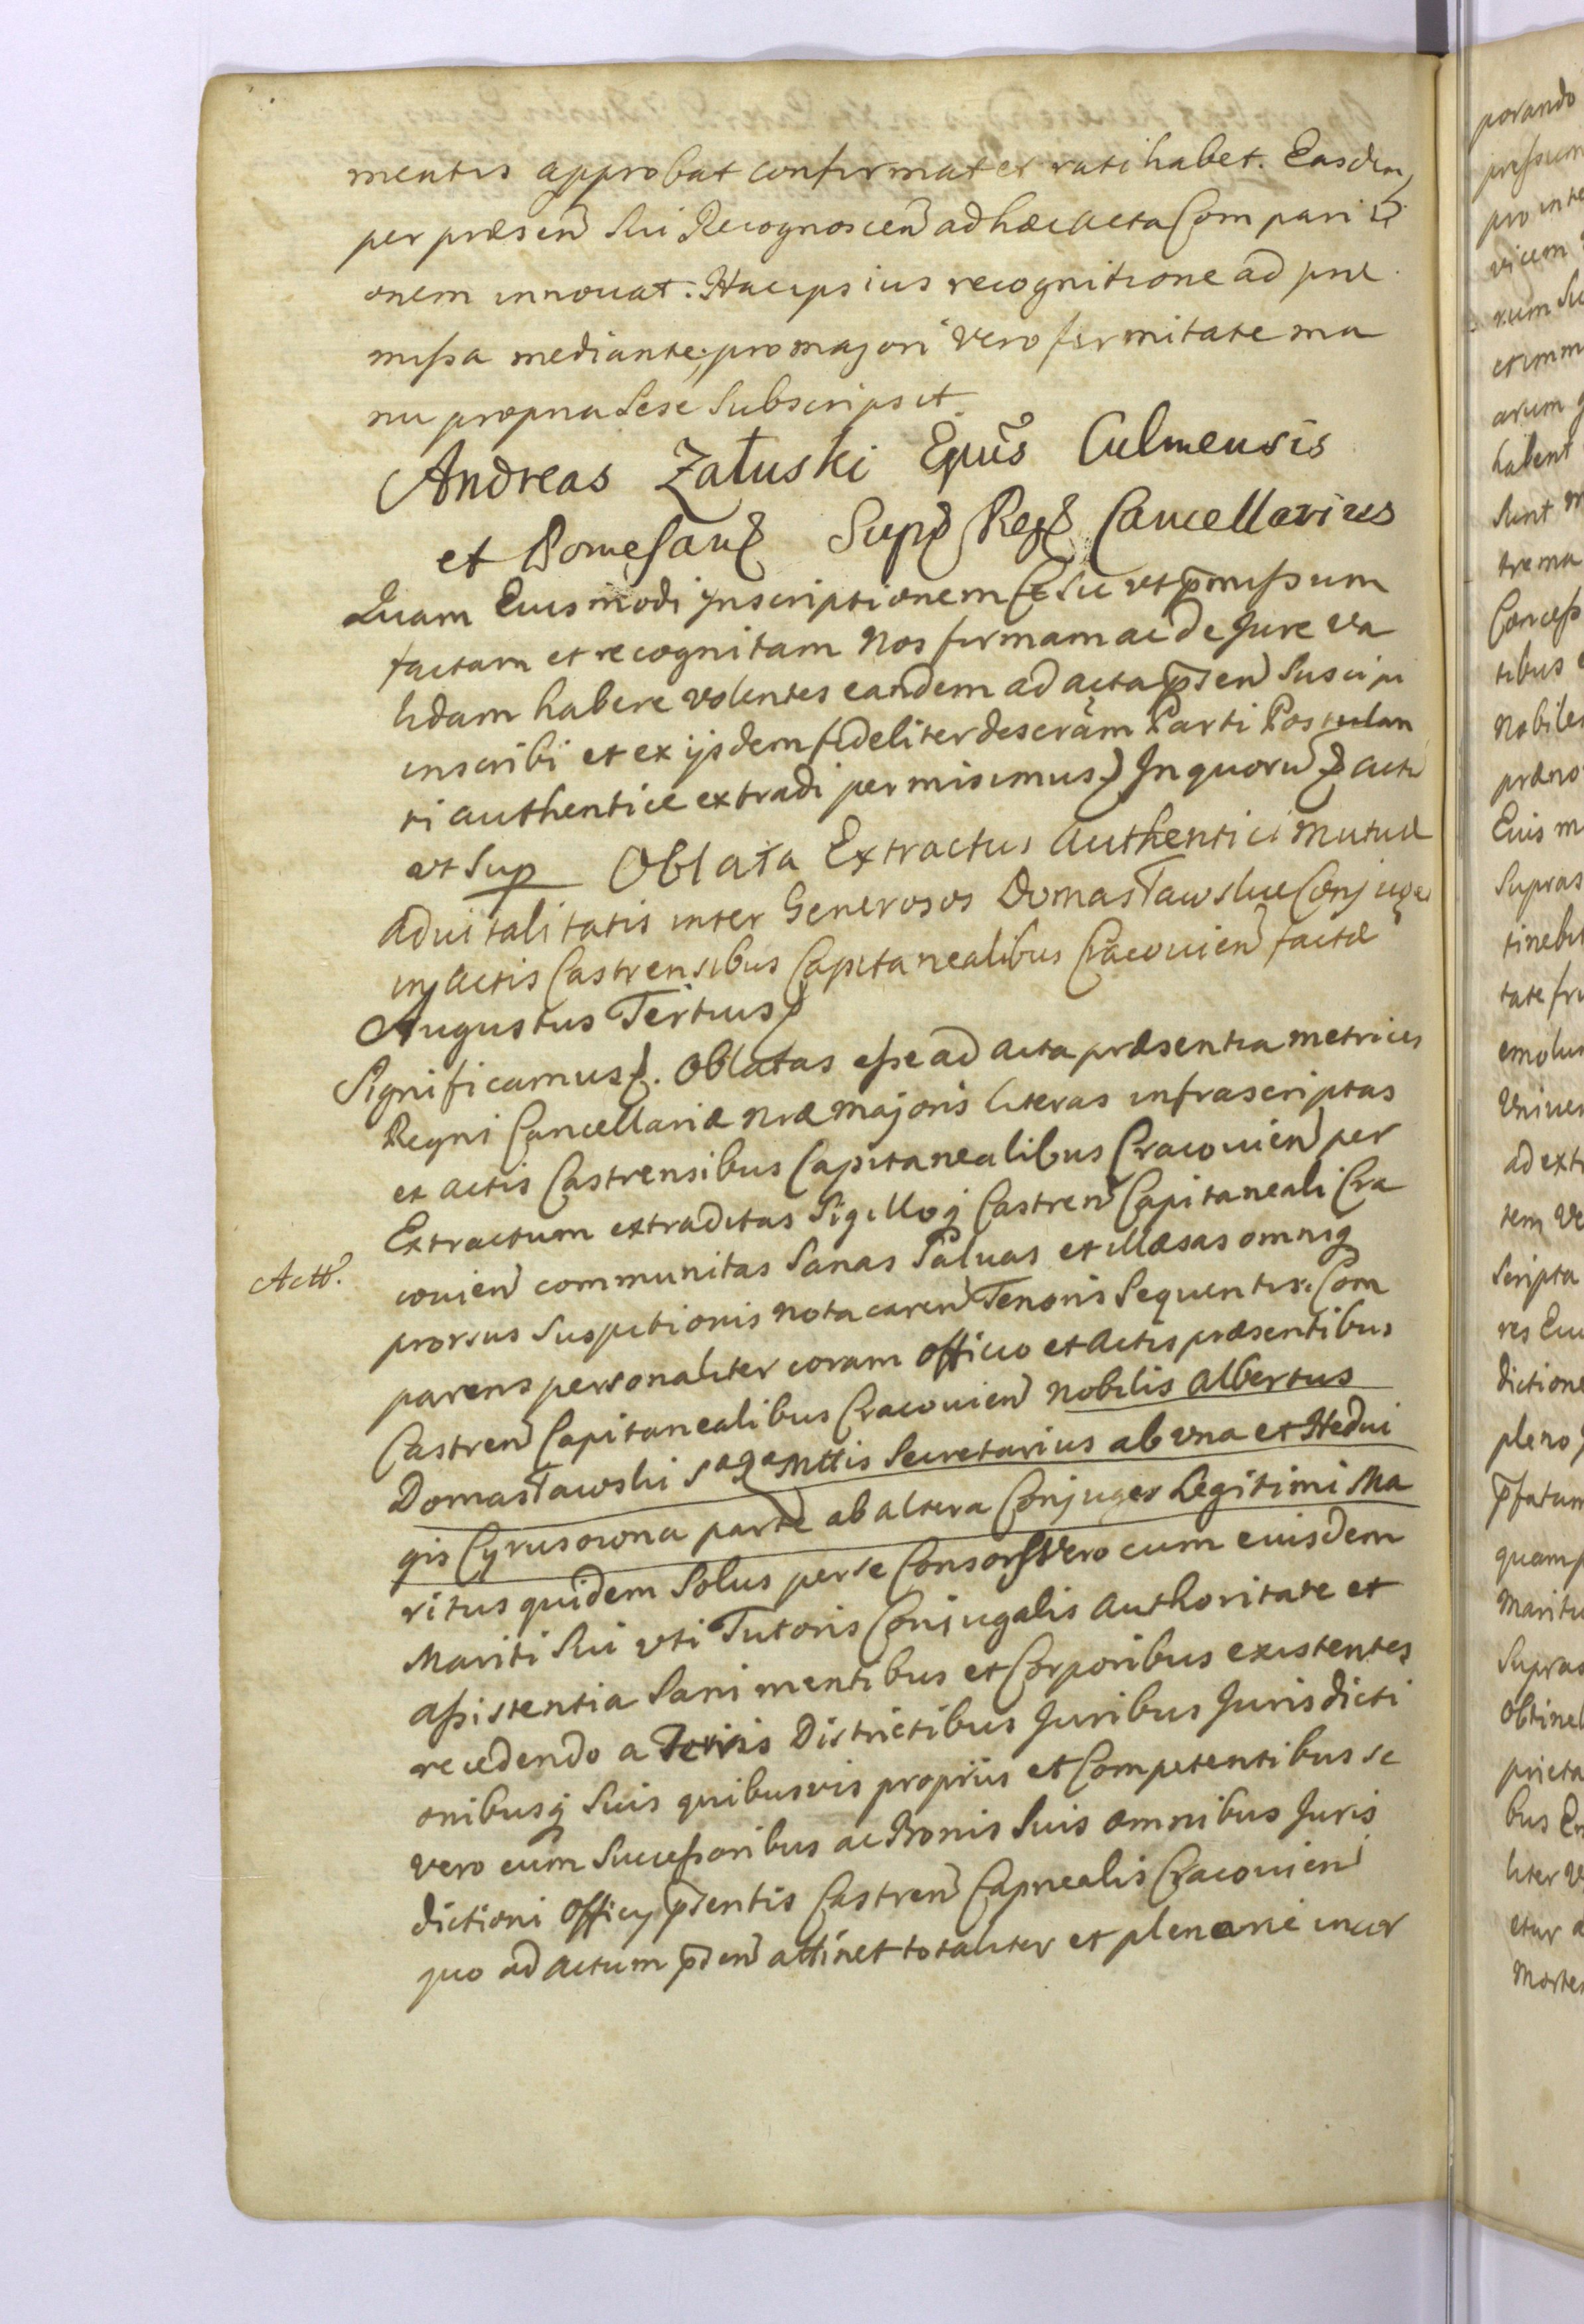 mentis approbat confirmat et ratihabet. Easdem
per præsen Sui Recognoscen ad hæc acta Compariti
onem innouat. Hac ipsius recognitione ad præ
missa mediante, pro majori vero firmitate ma
nu propria Sese Subscripsit
Andreas Załuski Epũs Culmensis
et Pomesanꝭ Supꝭ Regꝭ Cancellarius
Quam Euismodi Inscriptionem sic ut p̄missum
factam et recognitam Nos firmam ac de Jure va
lidam habere volentes eandem ad acta p̄sen Suscipi
inscribi et ex ijsdem fideliter descram Parti Postulan
ti authentice extradi permisimus In quorũ actũ
ut Sup Oblata Extractus authentici Mutuæ
aduitalitatis inter Generosos Domasławskie Conjuges
in Actis Castrensibus Capitanealibus Cracouien factæ
Augustus Tertius
Significamus. Oblatas esse ad acta præsentia metrices
Regni Cancellariæ nræ Majoris literas infrascriptas
ex actis Castrensibus Capitanealibus Cracouien per
Extractum extraditas Sigilloq Castren Capitaneali Cra
couien communitas Sanas Saluas et illæsas omniq
Actt.
prorsus Suspitionis nota caren Tenoris Sequentis. Com
parens personaliter coram officio et Actis præsentibus
Castren Capitanealibus Cracouien Nobilis Albertus
Domasławski Mttis Secretarius ab una et Hedui
gis Cyrusowna parte ab altera Conjuges Legitimi Ma
ritus quidem Solus per se Consors Vero cum euisdem
Mariti Sui uti Tutoris Conjugalis Authoritate et
assistentia Sani mentibus et Corporibus existentes
recedendo a Terris Districtibus Juribus Jurisdicti
onibusq Suis quibusvis proprijs et Competentibus se
vero cum Successoribus ac Bonis Suis omnibus Juris
dictioni Officij p̄sentis Castren Capnealis Cracouien
quo ad actum p̄sen attinet totaliter et plenarie incor